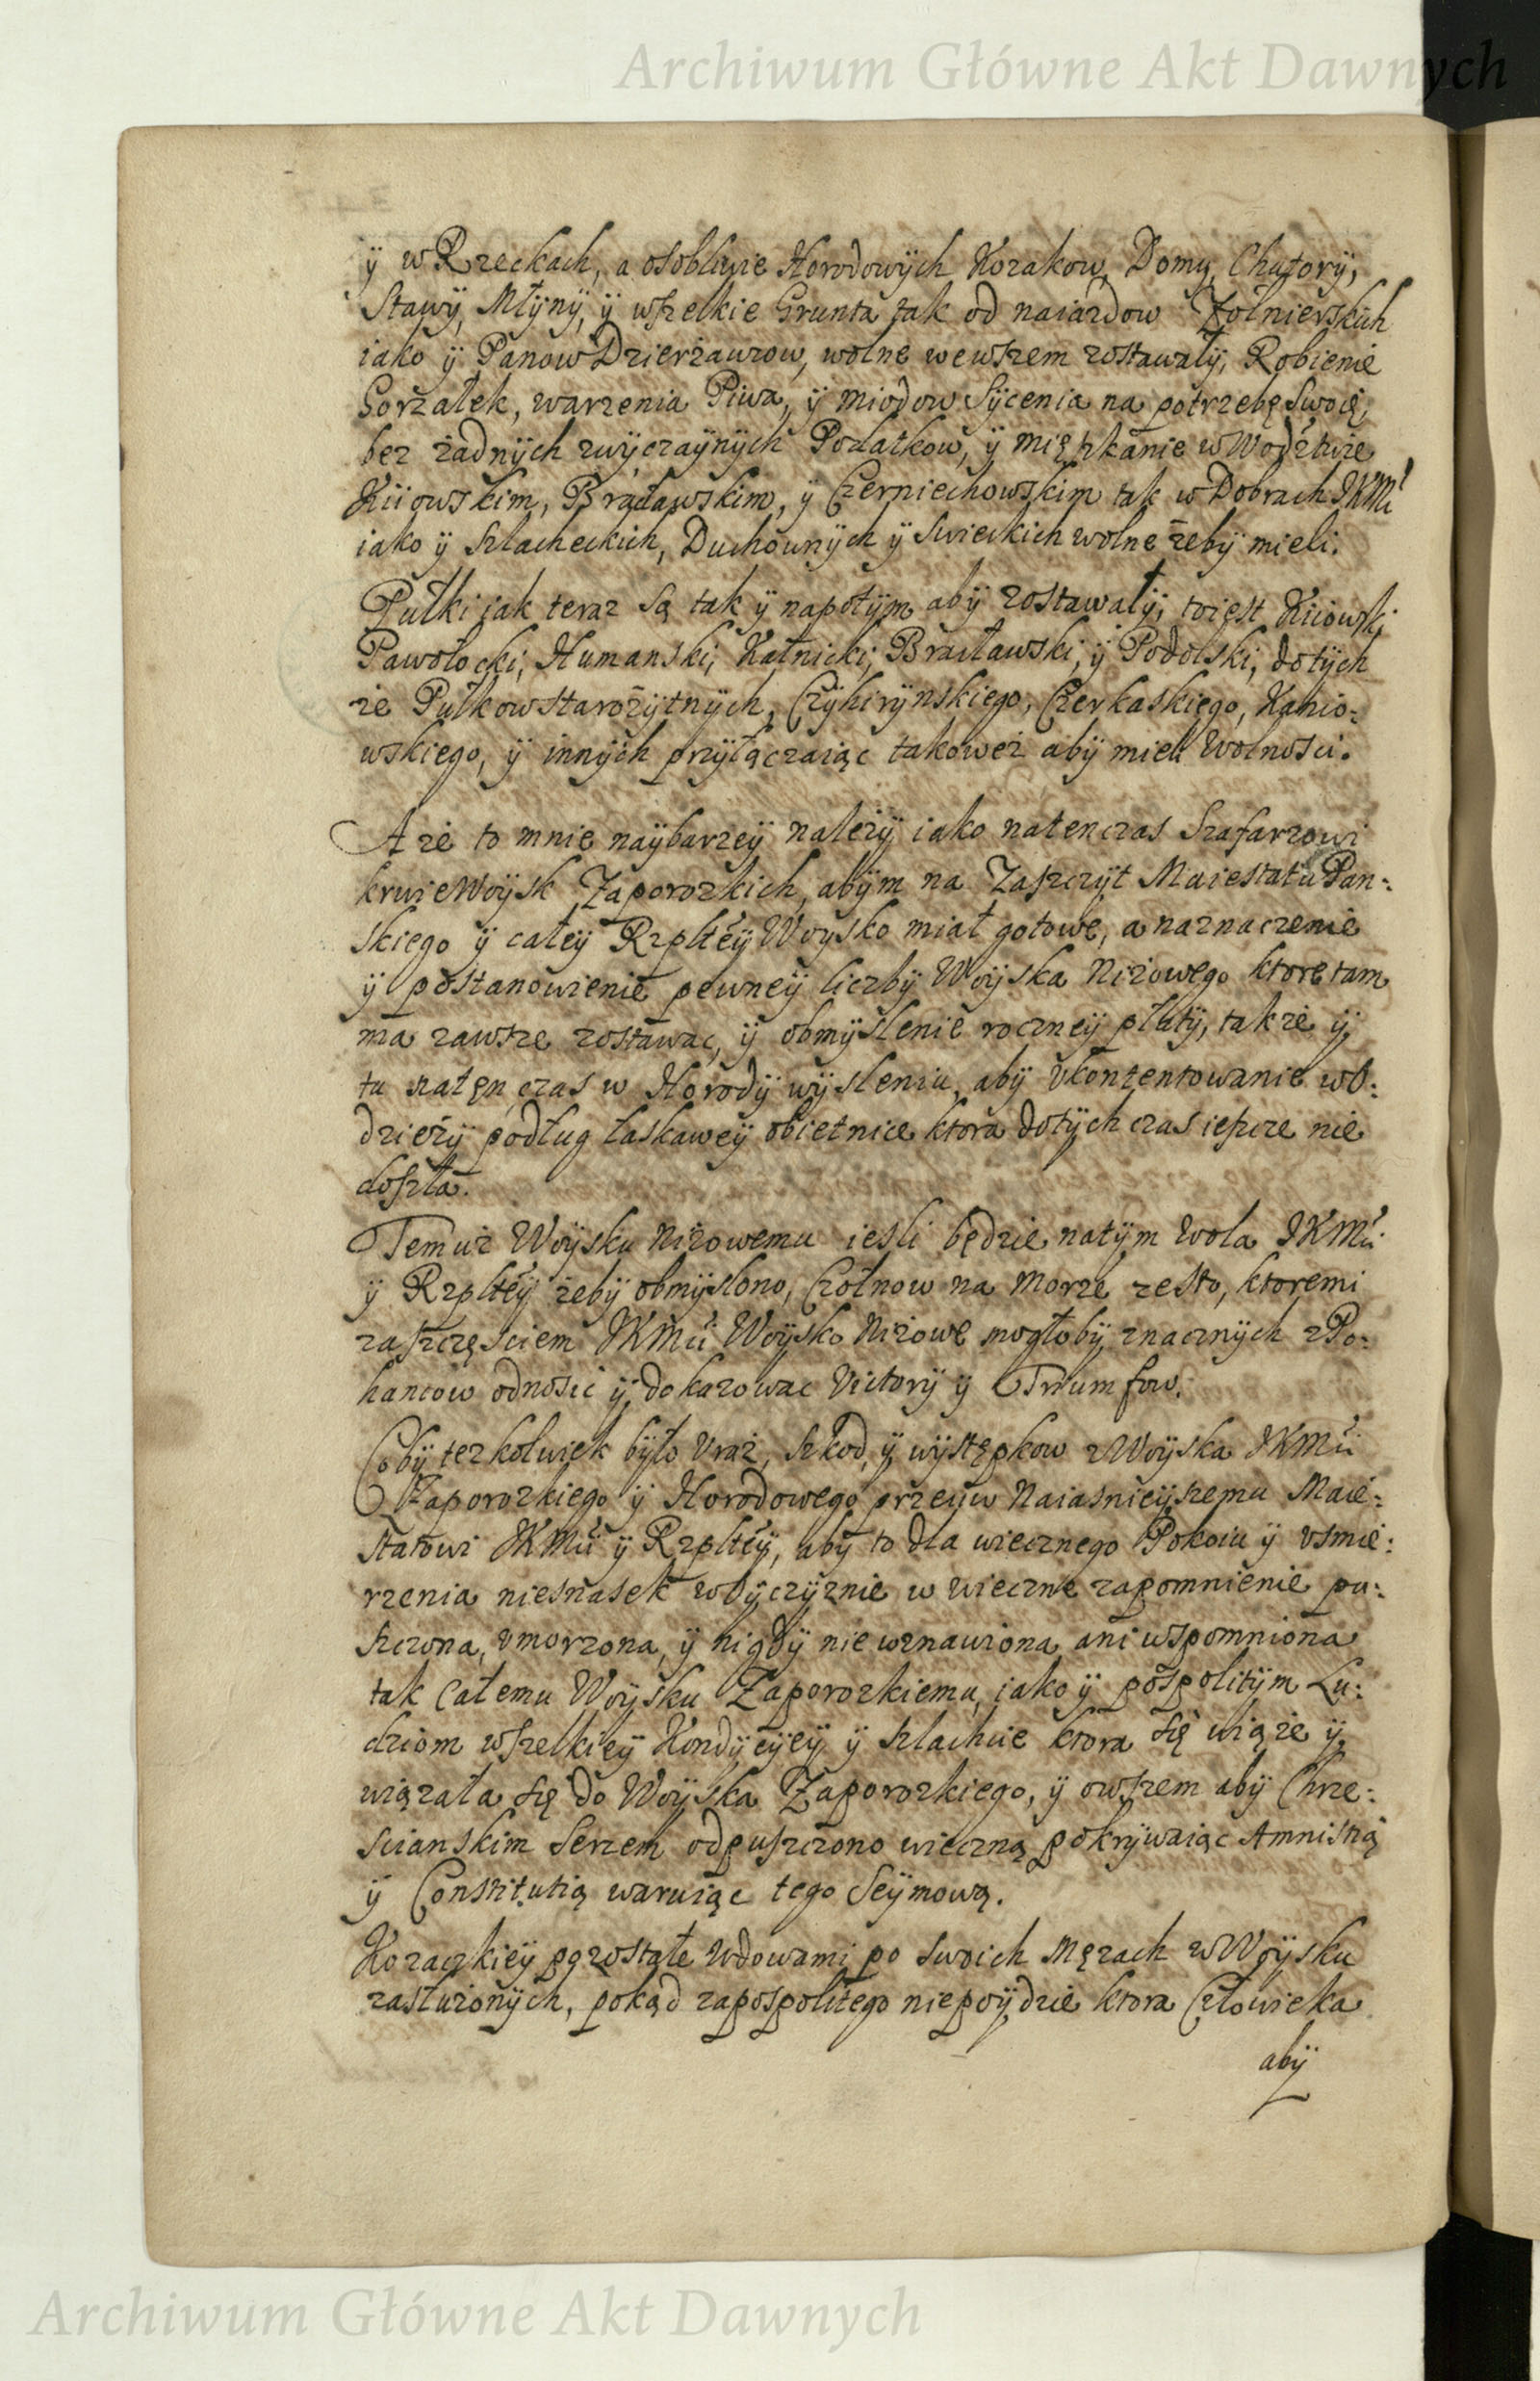 Archiwum Główne Akt Dawnych
ÿ w Rzeckach, a osobliwie Horodowÿch Kozakow, Domy, Chutorÿ,
Stawÿ, Młÿnÿ, ÿ wszelkie Grunta tak od naiazdow Zołnierskich
iako ÿ Panow Dzierżawcow, wolne wewszem zostawałÿ, Robienie
Gorzałek, warzenia Piwa, ÿ miodow Sÿcenia na potrzebę Swoię,
bez żadnÿch zwÿczaÿnÿch Podatkow, ÿ mięszkanie w Wodztwie
Kiiowskim, Bracławskim, ÿ Czerniechowskim tak w Dobrach JKMci
iako ÿ Szlacheckich, Duchownÿch ÿ Swieckich wolne żebÿ mieli.
Pułki jak teraz są tak ÿ napotÿm abÿ zostawałÿ, toiest Kiiowski,
Pawołocki, Humanski, Kalnicki, Bracławski, ÿ Podolski, dotÿch
że Pułkow starożÿtnÿch, Czÿhirÿnskiego, Czerkaskiego, Kanio:
wskiego, ÿ innÿch przÿłączaiąc takoweż abÿ mieli Wolnosci.
A że to mnie naÿbarzeÿ należÿ iako natenczas Szafarzowi
krwie Woÿsk Zaporozkich, abÿm na Zaszczÿt Maiestatu Pan:
skiego ÿ całeÿ Rzplteÿ Woÿsko miał gotowe, a naznaczenie
ÿ postanowienie pewneÿ liczbÿ Woÿska Niżowego ktore tam
ma zawsze zostawac, ÿ obmÿslenie roczneÿ płatÿ, także ÿ
tu natęn czas w Horodÿ wÿsleniu, abÿ vkontentowanie wo:
dzieżÿ podług łaskaweÿ obietnice ktora dotÿch czas ieszcze nie
doszła.
Temuż Woÿsku Niżowemu iesli będzie natÿm Wola JKMci
ÿ Rzplteÿ żebÿ obmÿslono, Czołnow na morze ze sto, ktoremi
zaszczęsciem JKMci Woÿsko Niżowe mogłobÿ znacznÿch z Po:
hancow odnosic ÿ dokazowac Victorÿ ÿ Triumfow.
Cobÿ tezkolwiek bÿło vraz, szkod, ÿ wÿstępkow z Woÿska JKMci
Zaporozkiego ÿ Horodowego przeciw Naiasnieÿszemu Maie:
statowi JKMci ÿ Rzplteÿ, abÿ to dla wiecznego Pokoiu ÿ vsmie:
rzenia niesnasek w Oÿczÿznie w wieczne zapomnienie pu:
szczona, vmorzona, ÿ nigdÿ nie wznawiona ani wspomniona
tak Całemu Woÿsku Zaporozkiemu, iako ÿ pospolitÿm Lu:
dziom wszelkieÿ Kondÿcÿeÿ ÿ szlachcie ktora się wiąże ÿ
wiązała się do Woÿska Zaporozkiego, ÿ owszem abÿ Chrze:
scianskim Sercem odpuszczono wieczną pokrÿwaiąc Amnistią
ÿ Constitutią waruiąc tego Seÿmową.
Kozaczkieÿ pozostałe Wdowami po swoich Mężach w Woÿsku
zasłużonÿch, pokąd zapospolitego niepoÿdzie ktora Człowieka
abÿ
Archiwum Główne Akt Dawnych